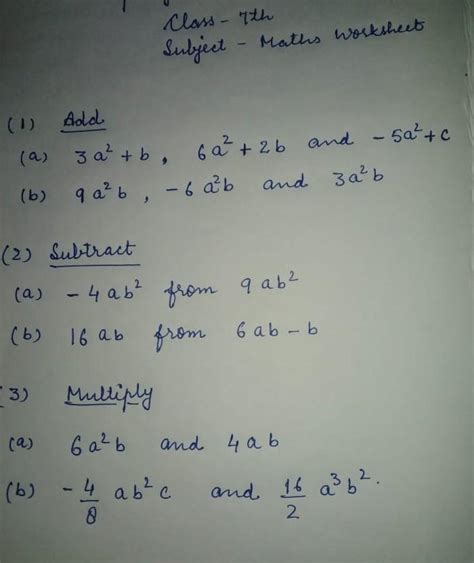 Class - 7th
Subject - Maths Worksheet
(1) Add
(a) 3a² + b , 6a² + 2b and - 5a² + c
(b) 9a²b , -6a²b and 3a²b
(2) Subtract
(a) - 4ab² from 9ab²
(b) 16ab from 6ab - b
3) Multiply
(a) 6a²b and 4ab
(b) - 4/8 ab²c and 16/2 a³b².